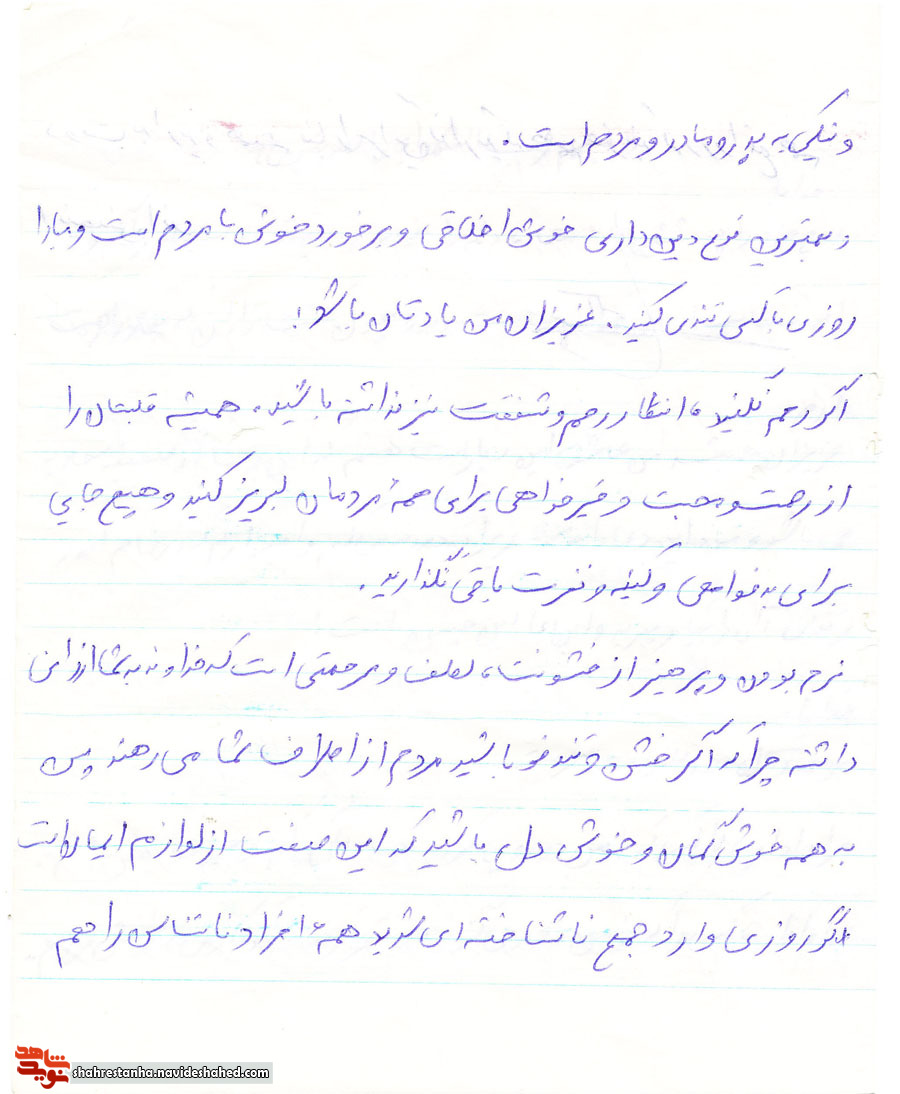 و نیکی به پدر و مادر و مردم است.
و بهترین نوع دین داری خوش اخلاقی و برخورد خوش با مردم است و مبادا
روزی با کسی تندی کنید. عزیزان من یادتان باشد:
اگر رحم نکنید، انتظار رحم و شفقت نیز نداشته باشید. همیشه قلبتان را
از رحمت و محبت و خیرخواهی برای همهٔ مردمان لبریز کنید و هیچ جایی
برای بدخواهی و کینه و نفرت باقی نگذارید.
نرم بودن و پرهیز از خشونت، لطف و مرحمتی است که خداوند به شما ارزانی
داشته چرا که اگر خشن و تندخو باشید مردم از اطراف شما می رهند پس
به همه خوش گمان و خوش دل باشید که این صفت از لوازم ایمان است
اگر روزی وارد جمع ناشناخته ای شدید همهٔ افراد ناشناس را هم
نوید شاهد
shahrestanha.navideshahed.com